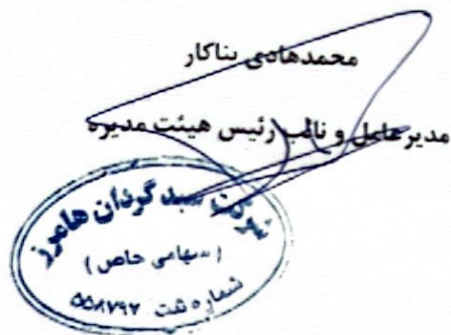 محمدهادی بناکار
مدیرعامل و نائب رئیس هیئت مدیره
شرکت سبدگردان هامرز
(سهامی خاص)
شماره ثبت ۵۵۸۷۹۲